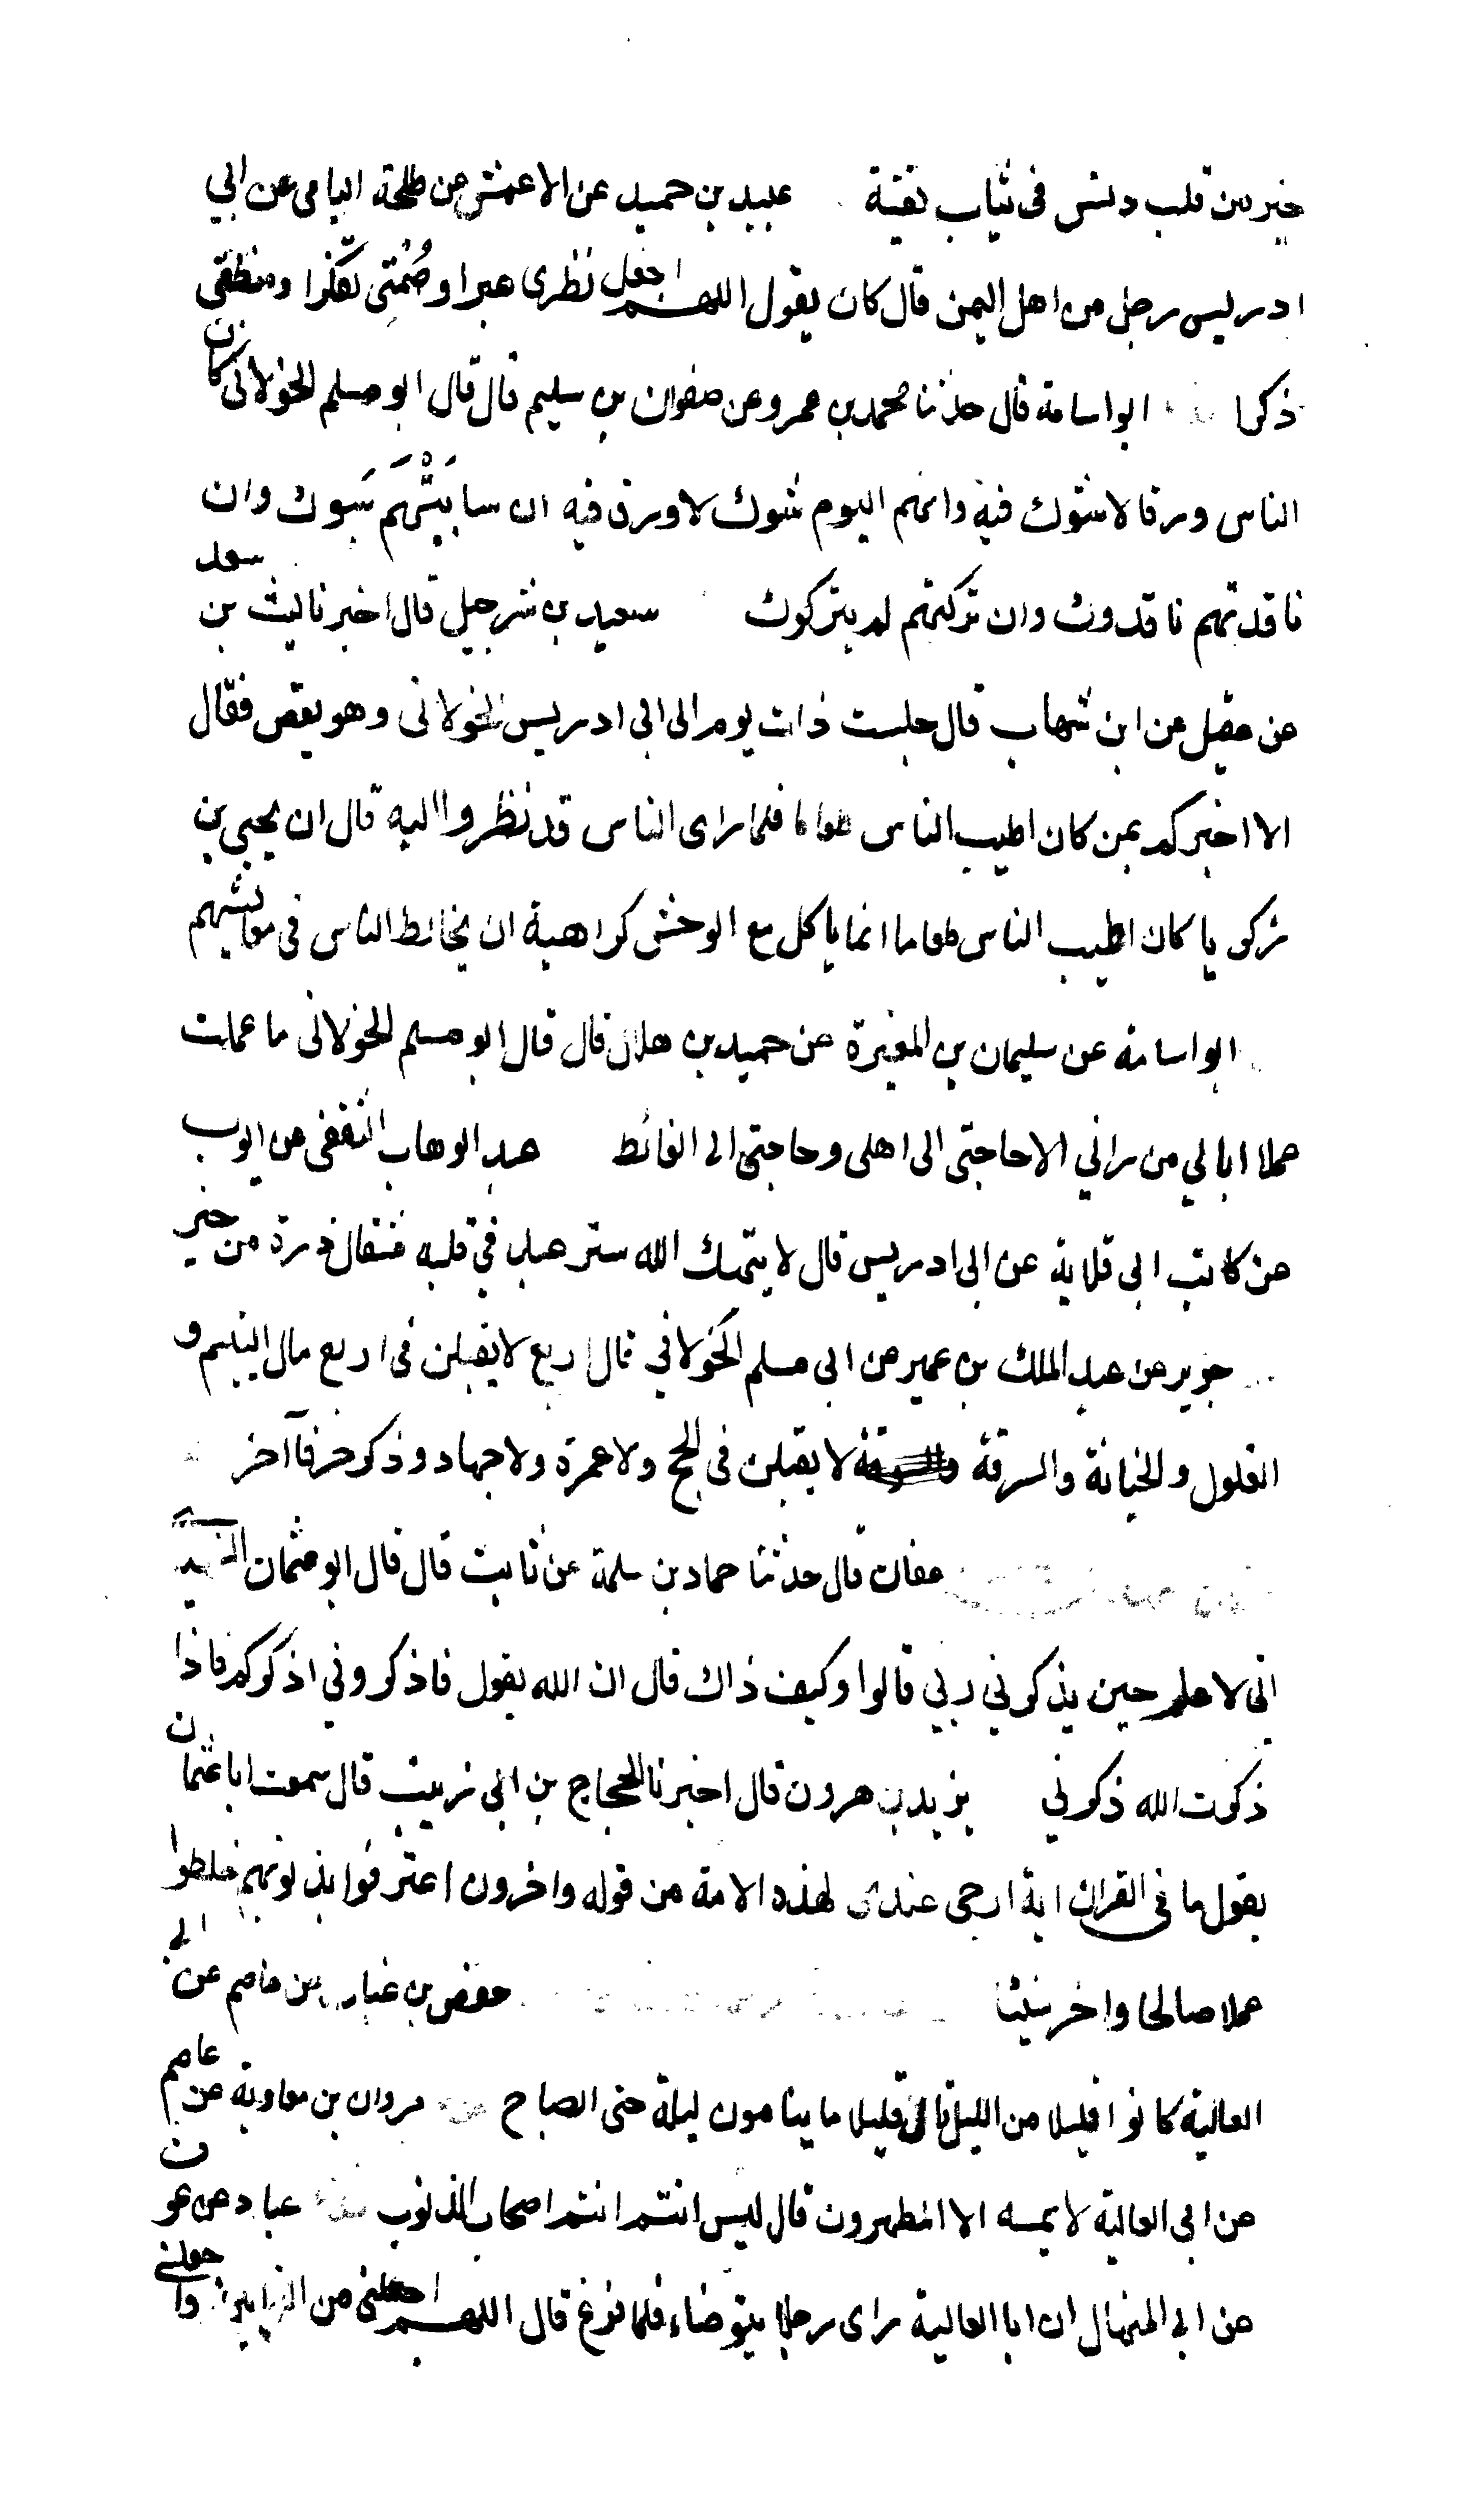 خير من قلب دنس فى ثياب نقية عبيد بن حميد عن الاعمش عن طلحة اليامى عن ابي
ادريس رجل من اهل اليمن قال كان يقول اللهم اجعل نظرى عبرا وصُمْتِى تفكرا ومنطقى
ذكرا ابو اسامة قال حدثنا محمد بن عمرو عن صفوان بن سليم قال قال ابو مسلم الخولانى كان
الناس ورقا لا شوك فيه وانهم اليوم شوك لا ورق فيه ان سابَبْتَهم سَبوك وان
ناقدتهم ناقدوك وان تركتهم لم يتركوك سعيد بن شرحبيل قال اخبرنا ليث بن سعد
عن عقيل عن ابن شهاب قال جلست ذات يوم الى ابى ادريس الخولانى وهو يقص فقال
الا اخبركم بمن كان اطيب الناس طعاما فلما راى الناس قد نظروا اليه قال ان يحيى بن
زكريا كان اطيب الناس طعاما انما ياكل مع الوحش كراهية ان يخالط الناس فى معايشهم
ابو اسامة عن سليمان بن المغيرة عن حميد بن هلال قال قال ابو مسلم الخولانى ما عملت
عملا ابالي من راني الا حاجتى الى اهلى وحاجتى الى الغائط عبد الوهاب الثقفى عن ايوب
عن كاتب ابى قلابة عن ابى ادريس قال لا يهتك الله ستر عبد فى قلبه مثقال ذرة من خير
جرير عن عبد الملك بن عمير عن ابى مسلم الخولاني قال اربع لا يقبلن فى اربع مال اليتيم و
الغلول والخيانة والسرقة لا يقبلن فى الحج ولا عمرة ولا جهاد وذكر حرفا آخر
عفان قال حدثنا حماد بن سلمة عن ثابت قال قال ابو عثمان النهدى
انى لا علم حين يذكرني ربي قالوا وكيف ذاك قال ان الله يقول فاذكروني اذكركم فاذا
ذكرت الله ذكرني يزيد بن هرون قال اخبرنا الحجاج بن ابي زينب قال سمعت ابا عثمان
يقول ما فى القران اية ارجى عندى لهذه الامة من قوله واخرون اعترفوا بذنوبهم خلطوا
عملا صالحا واخر سيئا حفص بن غياث عن عاصم عن ابى
العالية كانوا قليلا من الليل قال قليلا ما ينامون ليلة حتى الصباح مروان بن معاوية عن عاصم
عن ابى العالية لا يمسه الا المطهرون قال ليس انتم انتم اصحاب الذنوب عباد عن عون
عن ابى المنهال ان ابا العالية راى رجلا يتوضاء فلما فرغ قال اللهم اجعلنى من التوابين واجعلنى